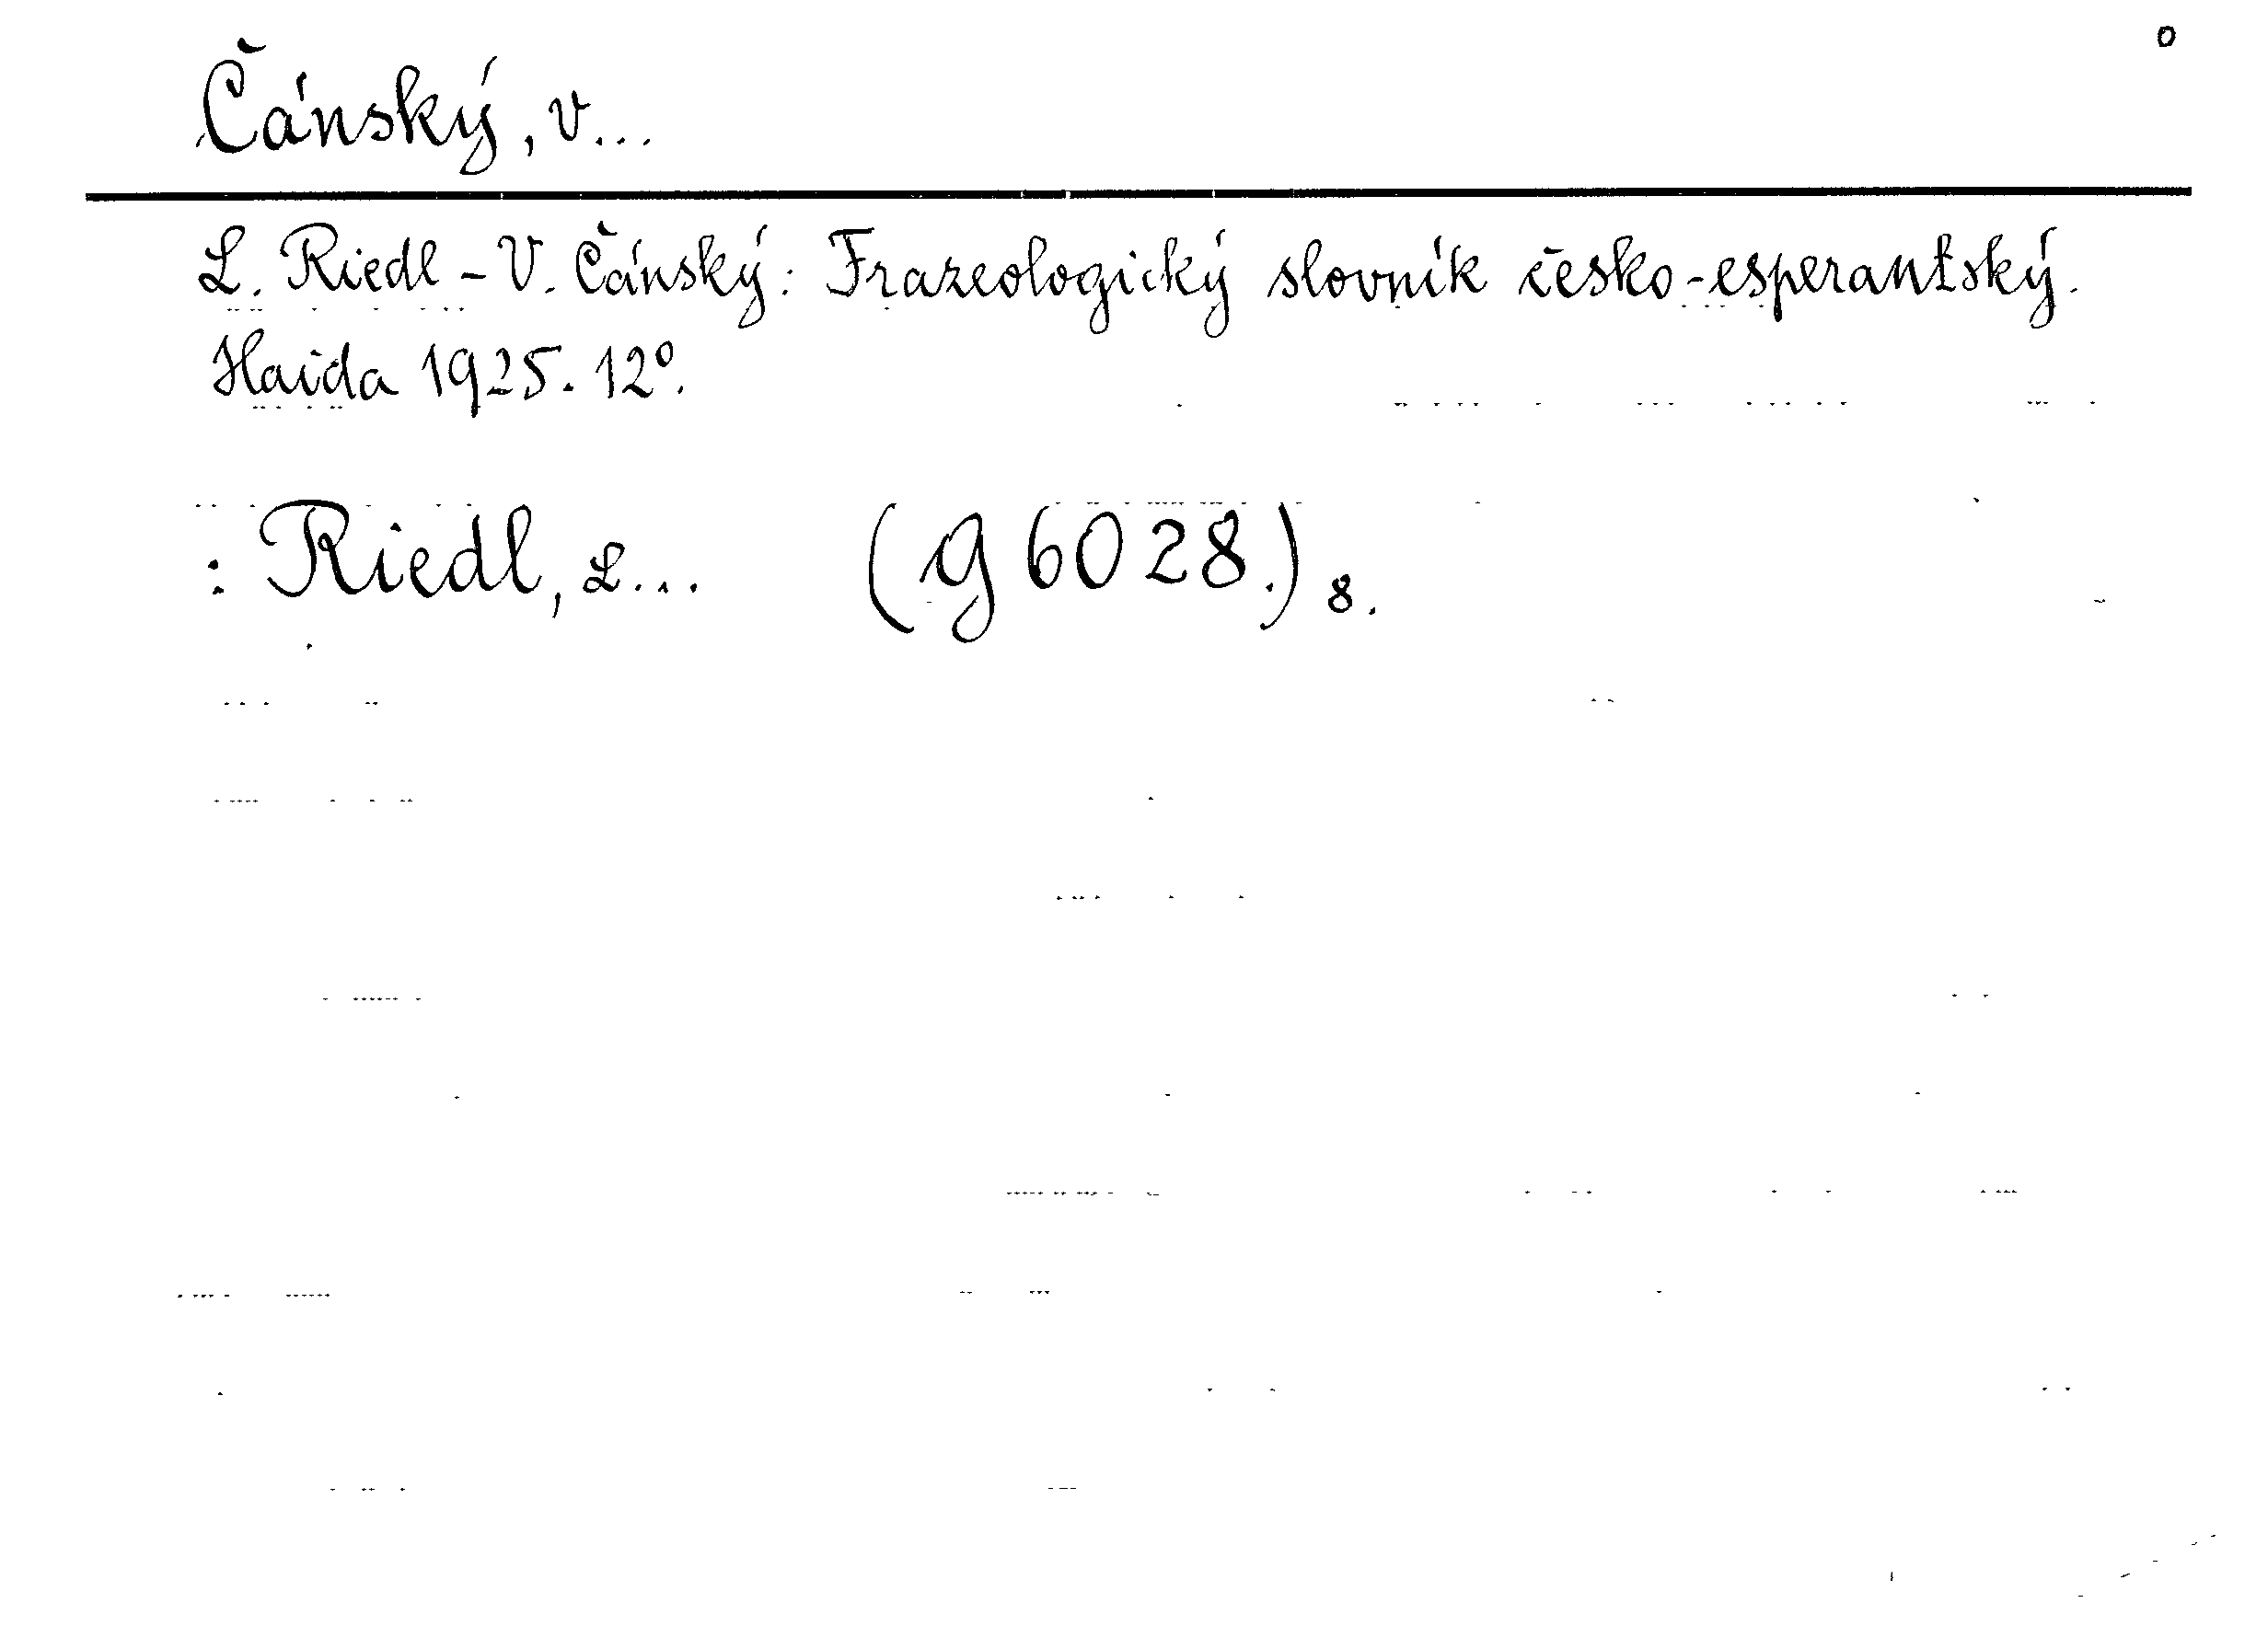 o
Čánský, V...
L. Riedl - V. Čánský: Frazeologický slovník česko-esperantský.
Haida 1925. 12°.
: Riedl, L... (g 6028.) 8.